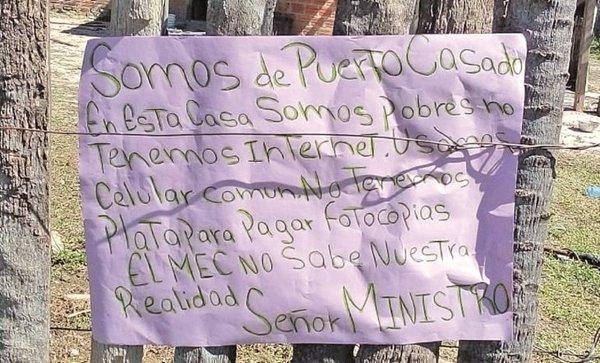 Somos de Puerto Casado
En Esta Casa Somos Pobres no
Tenemos Internet. Usamos
Celular comun. No Tenemos
Plata Para Pagar Fotocopias
EL MEC No Sabe Nuestra
Realidad Señor MINISTRO